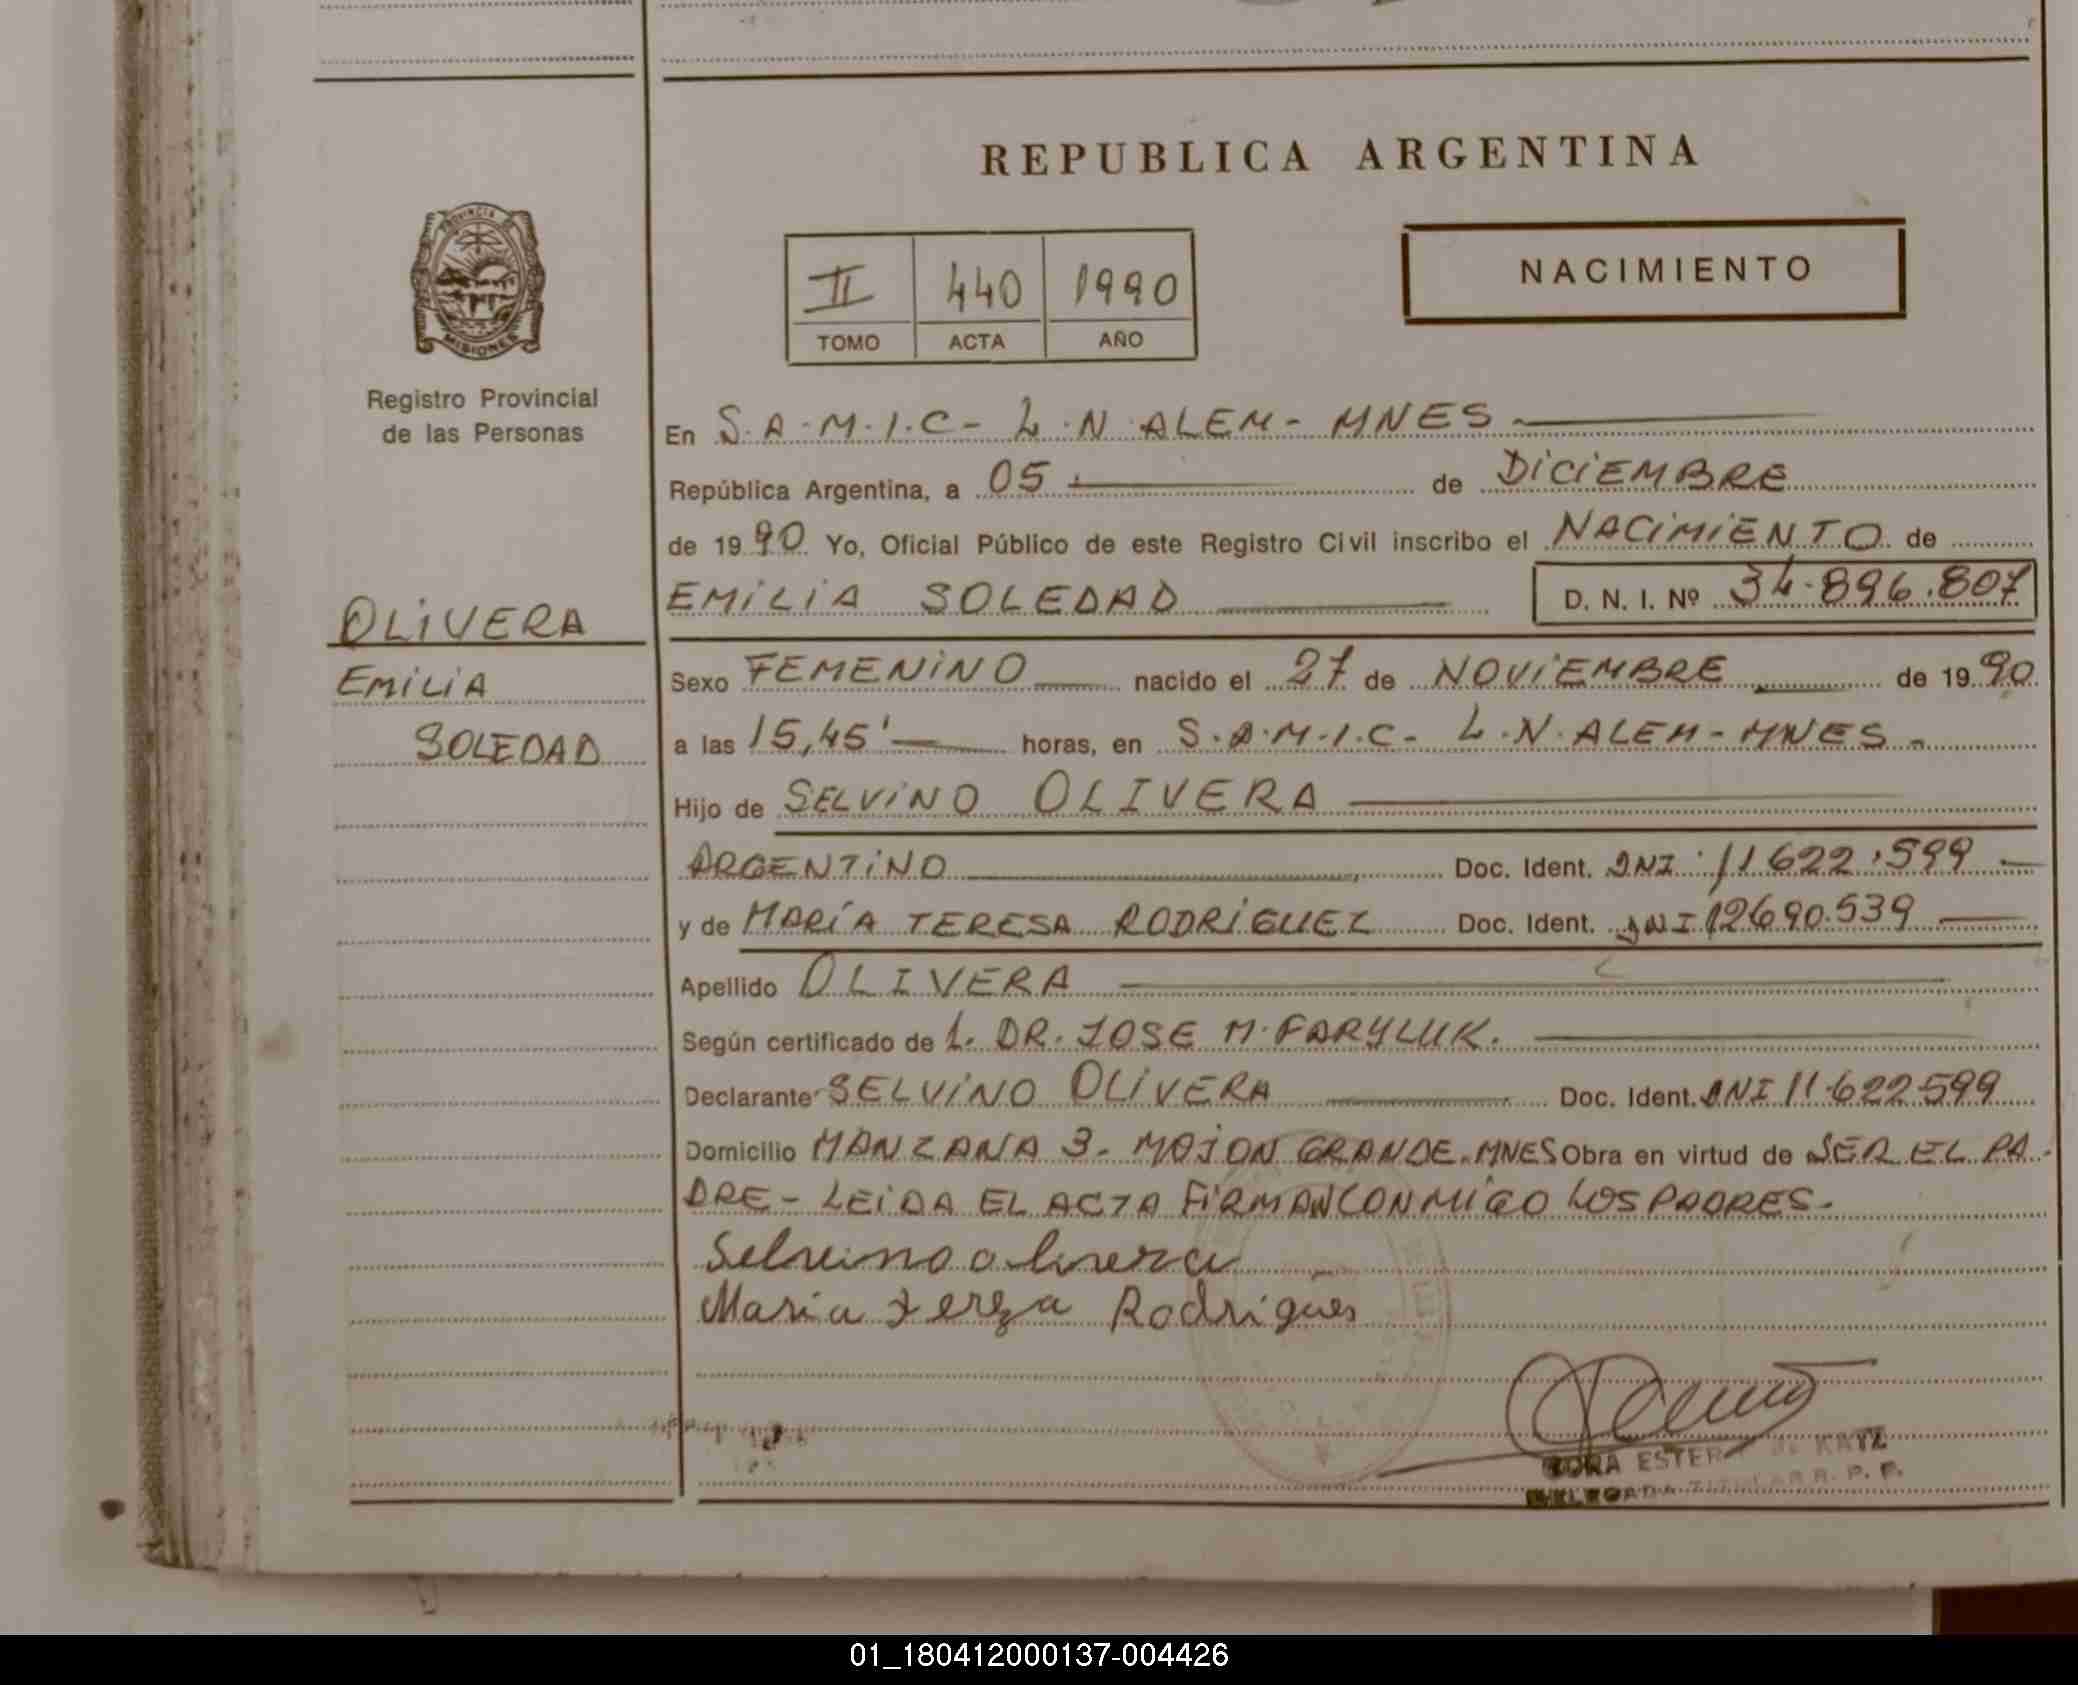 REPUBLICA ARGENTINA
PROVINCIA
MISIONES
Registro Provincial
de las Personas
II 440 1990
TOMO ACTA AÑO
NACIMIENTO
En S.A.M.I.C- L.N.ALEM- MNES
República Argentina, a 05 de DICIEMBRE
de 1990 Yo, Oficial Público de este Registro Civil inscribo el NACIMIENTO de
EMILIA SOLEDAD D. N. I. Nº 34.896.807
OLIVERA
EMILIA
SOLEDAD
Sexo FEMENINO nacido el 27 de NOVIEMBRE de 1990
a las 15,45' horas, en S.A.M.I.C- L.N.ALEM-MNES-
Hijo de SELVINO OLIVERA
ARGENTINO Doc. Ident. DNI 11622.599
y de MARÍA TERESA RODRIGUEZ Doc. Ident. DNI 12690.539
Apellido OLIVERA
Según certificado de L. DR. JOSE M. FARYLUK.
Declarante SELVINO OLIVERA Doc. Ident. DNI 11.622599
Domicilio MANZANA 3- MOJON GRANDE.MNES Obra en virtud de SER EL PA-
DRE- LEIDA EL ACTA FIRMAN CONMIGO LOS PADRES.
Selvino olivera
Maria tereza Rodrigues
ESTER KATZ
DELEGADA TITULAR R. P. P.
01_180412000137-004426